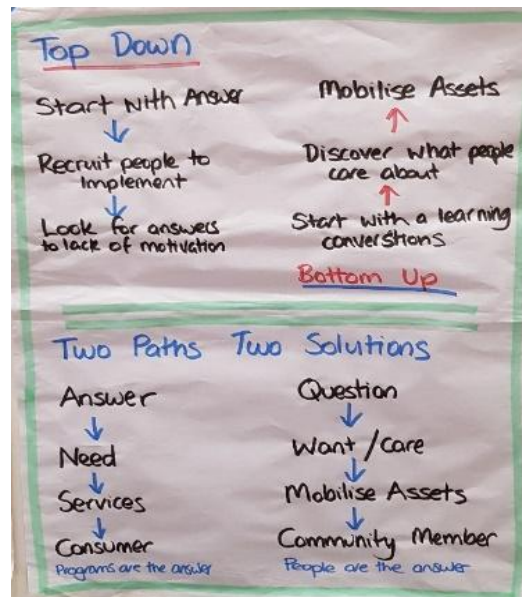 Top Down
Start with Answer
Recruit people to
Implement
Look for answers
to lack of motivation
Mobilise Assets
Discover what people
care about
Start with a learning
converstions
Bottom Up
Two Paths Two Solutions
Answer
Need
Services
Consumer
Programs are the answer
Question
Want / care
Mobilise Assets
Community Member
People are the answer